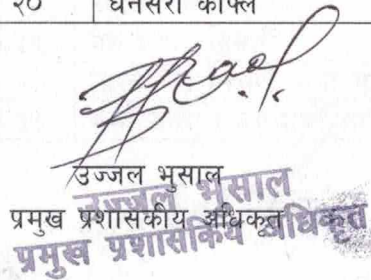 २० धनसरा काफ्ले
उज्जल भुसाल
प्रमुख प्रशासकीय अधिकृत
उज्जल भुसाल
प्रमुख प्रशासकिय अधिकृत